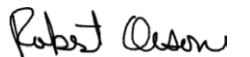 Robert Olson